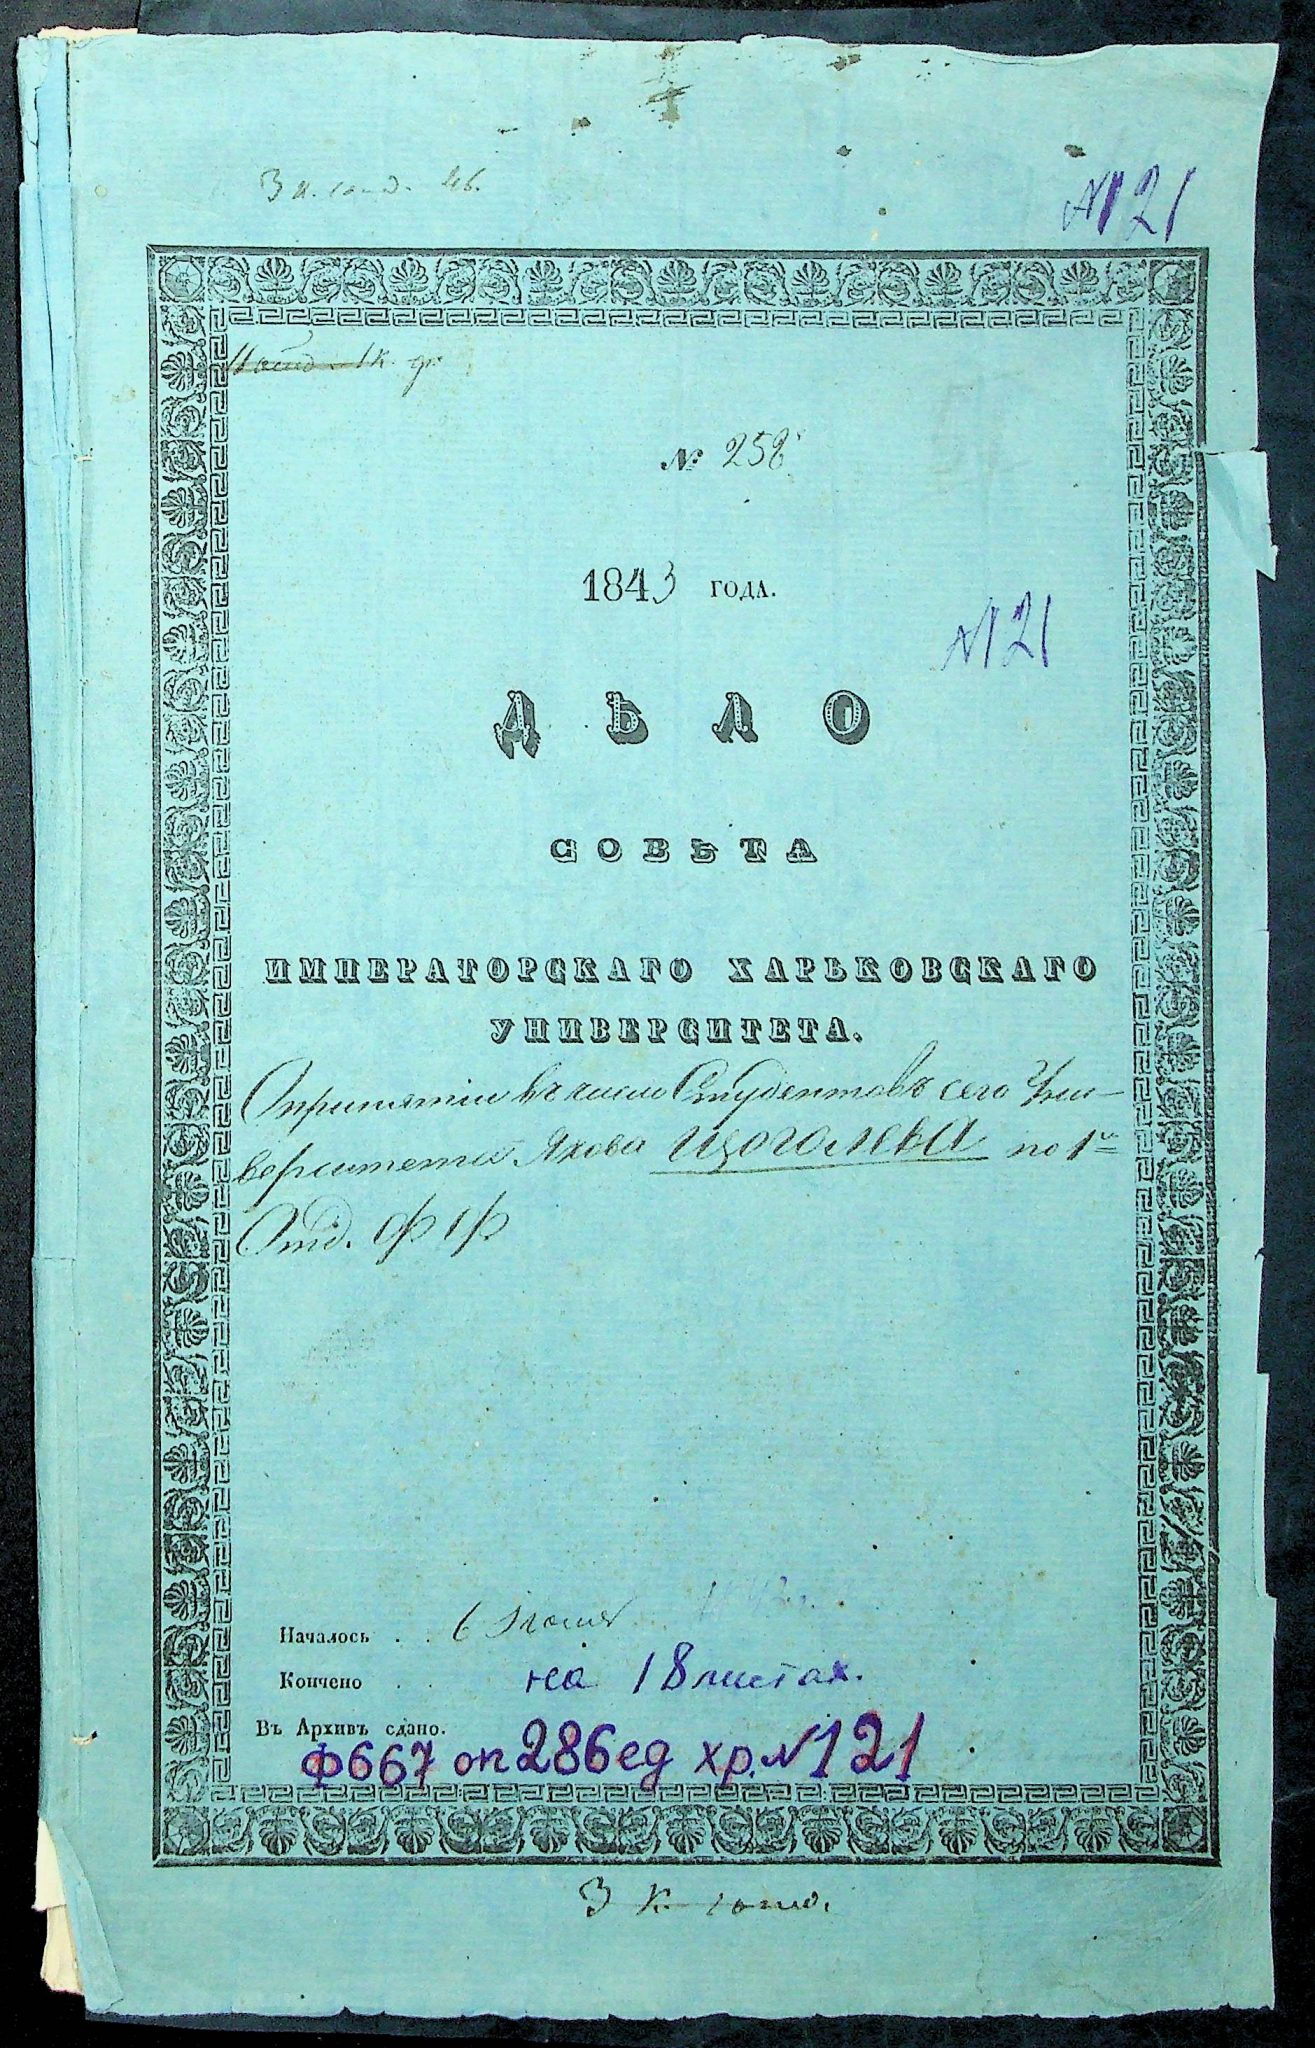 № 121
№ 258
1843 года.
№ 121
ДѢЛО
СОВѢТА
ИМПЕРАТОРСКАГО ХАРЬКОВСКАГО
УНИВЕРСИТЕТА.
О принятіи въ число Студентовъ сего Уни-
верситета Якова Щоголева по 1му
Отд. Ф. Ф.
Началось . . 6 Іюня
Кончено . . на 18 листах.
Въ Архивъ сдано.
Ф 667 оп 286 ед хр. № 121
3 к. 1 отд.